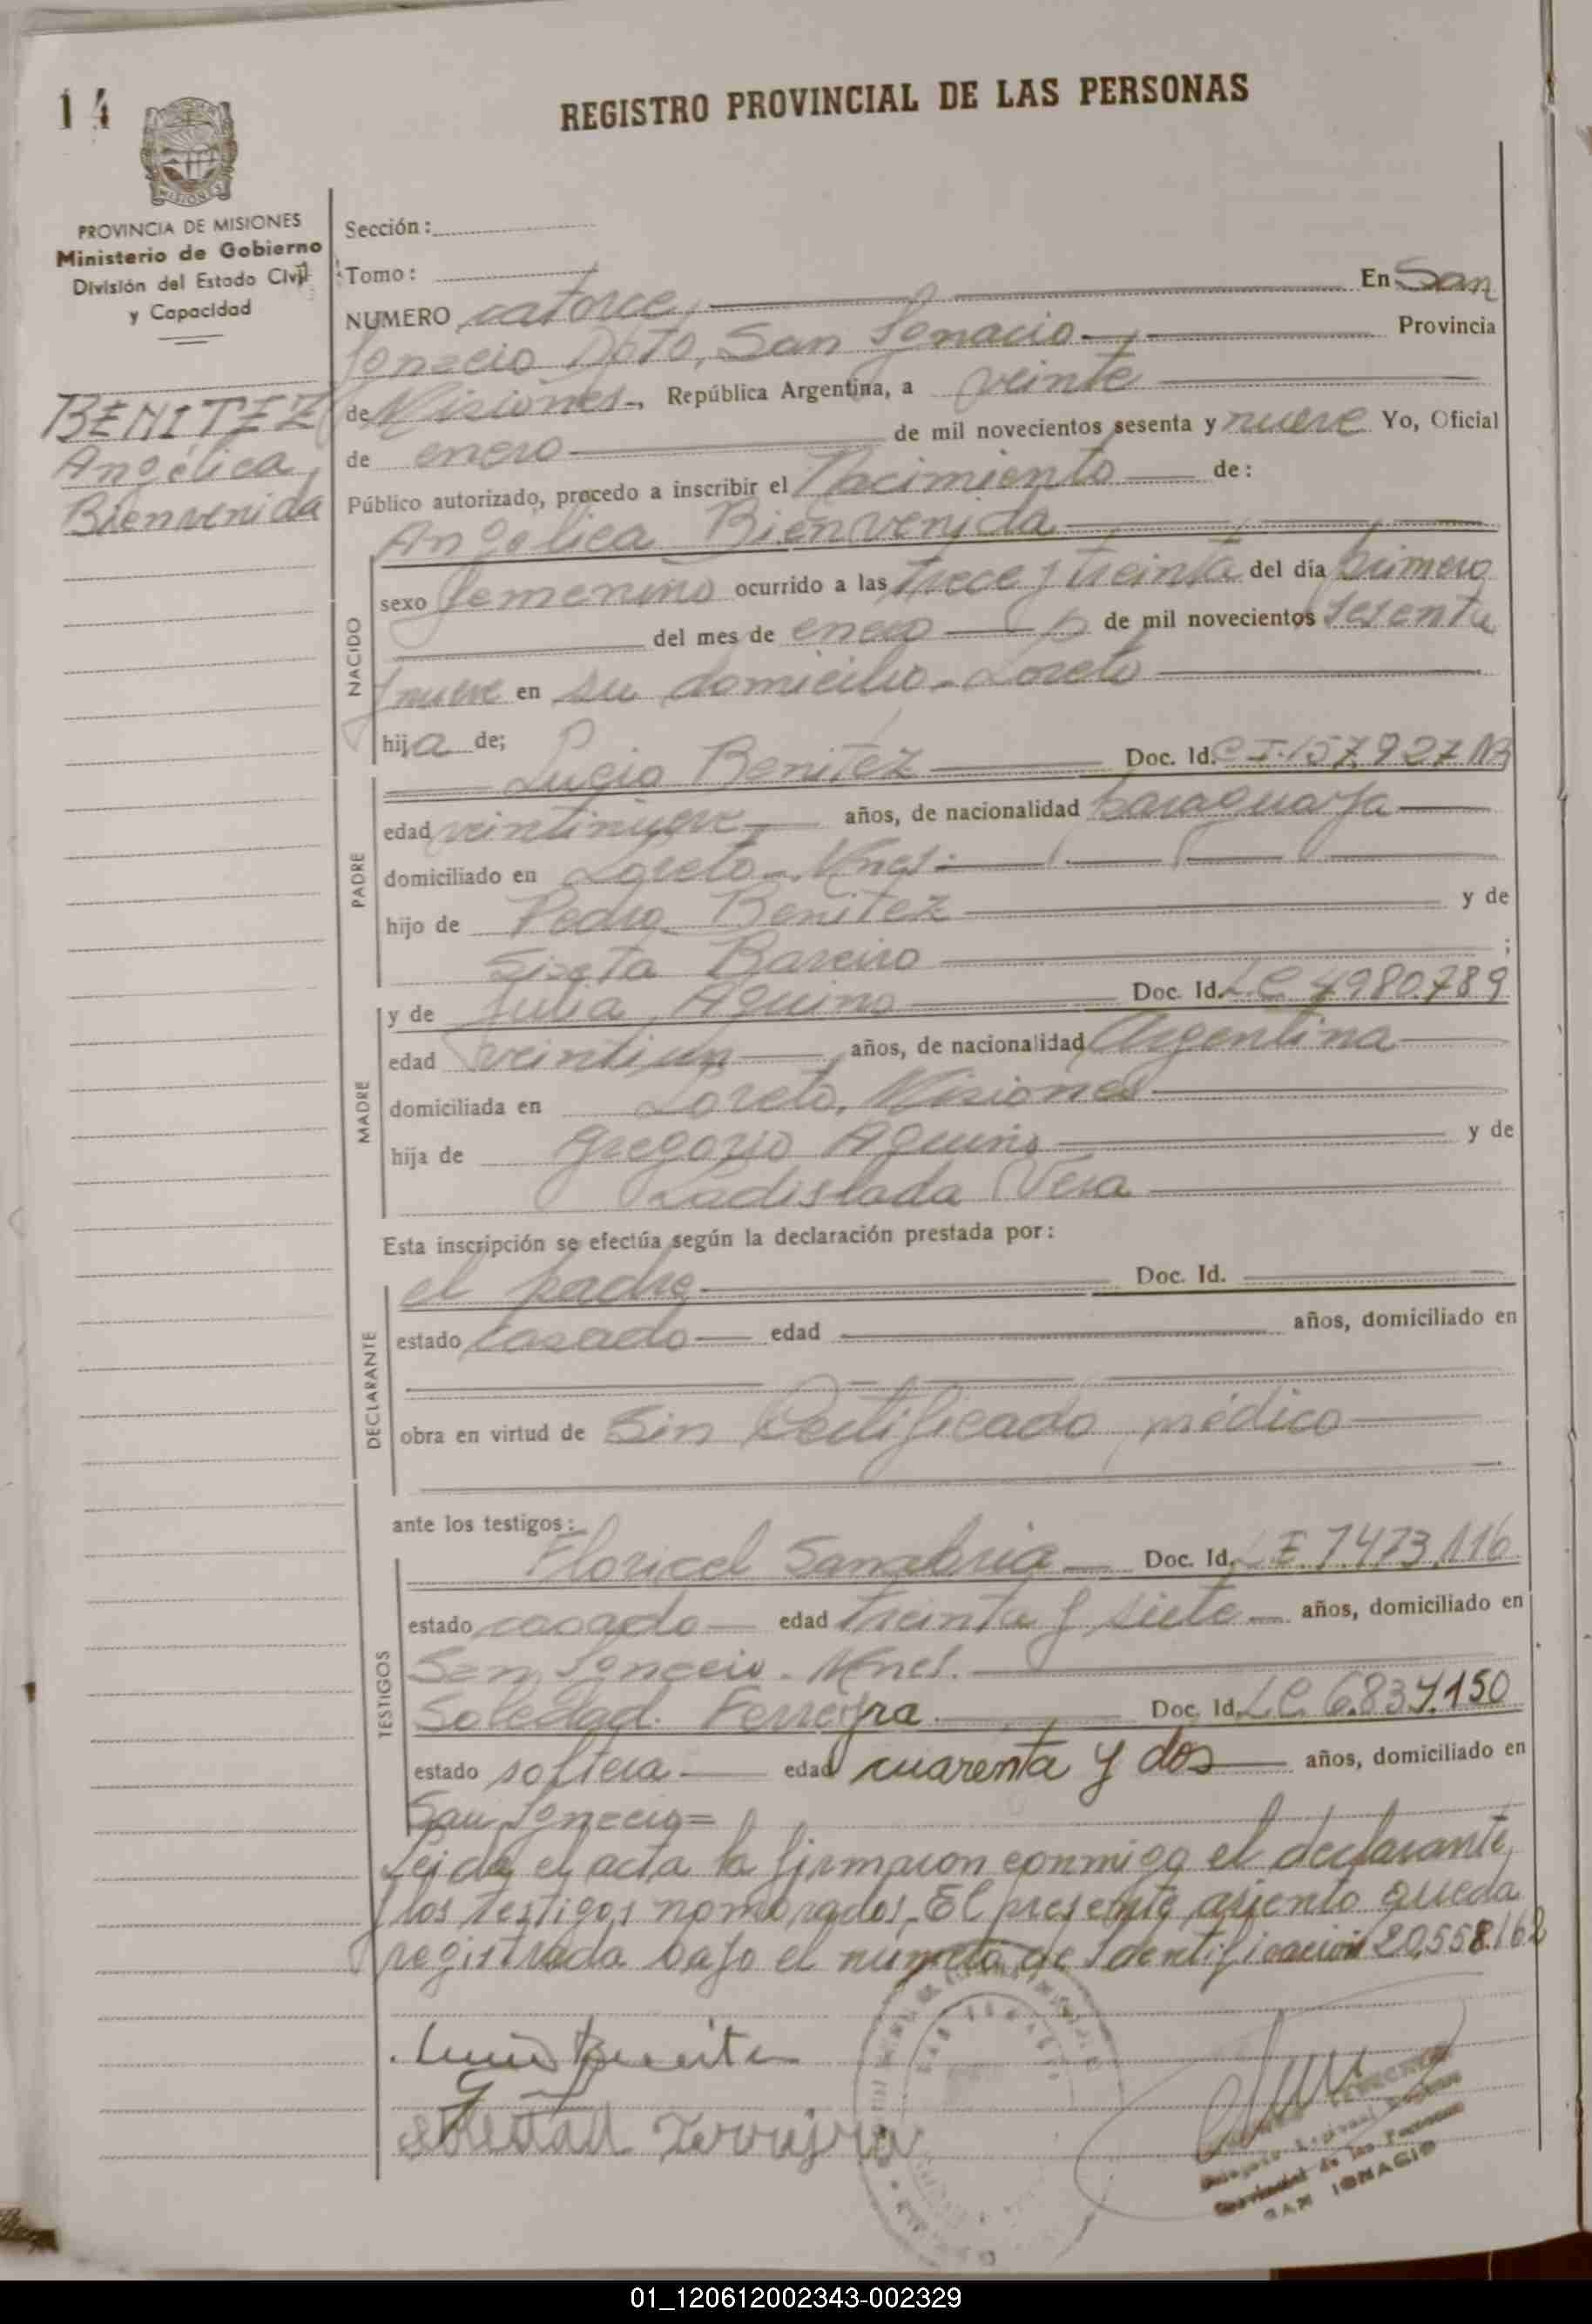 14
REGISTRO PROVINCIAL DE LAS PERSONAS
MISIONES
PROVINCIA DE MISIONES
Ministerio de Gobierno
División del Estado Civil
y Capacidad
BENITEZ
Angélica
Bienvenida
Sección:
Tomo:
NUMERO catorce, En San
Ignacio Dpto, San Ignacio Provincia
de Misiones, República Argentina, a veinte
de enero de mil novecientos sesenta y nueve Yo, Oficial
Público autorizado, procedo a inscribir el Nacimiento de:
Angelica Bienvenida
NACIDO
sexo femenino ocurrido a las trece y treinta del día primero
del mes de enero de mil novecientos sesenta
y nueve en su domicilio - Loreto
hija de;
Lucio Benitez Doc. Id. C I. 157.927
PADRE
edad veintinueve años, de nacionalidad paraguaya
domiciliado en Loreto - Mnes.
hijo de Pedro Benitez y de
Sixta Bareiro ;
MADRE
y de Julia Aquino Doc. Id. L.C 4980.789
edad veintiun años, de nacionalidad Argentina
domiciliada en Loreto, Misiones
hija de Gregorio Aquino y de
Ladislada Vera
Esta inscripción se efectúa según la declaración prestada por:
DECLARANTE
el padre Doc. Id.
estado casado edad años, domiciliado en
obra en virtud de Sin Certificado médico
ante los testigos:
TESTIGOS
Floricel Sanabria Doc. Id. L E. 7473.116
estado casado edad treinta y siete años, domiciliado en
San Ignacio - Mnes.
Soledad Ferreyra Doc. Id. L.C. 6.837.150
estado soltera edad cuarenta y dos años, domiciliado en
San Ignacio=
Leida el acta la firmaron conmigo el declarante
y los testigos nombrados. El presente asiento queda
registrada bajo el número de Identificación 20.558.162
Soledad Ferreyra
SAN IGNACIO
01_120612002343-002329